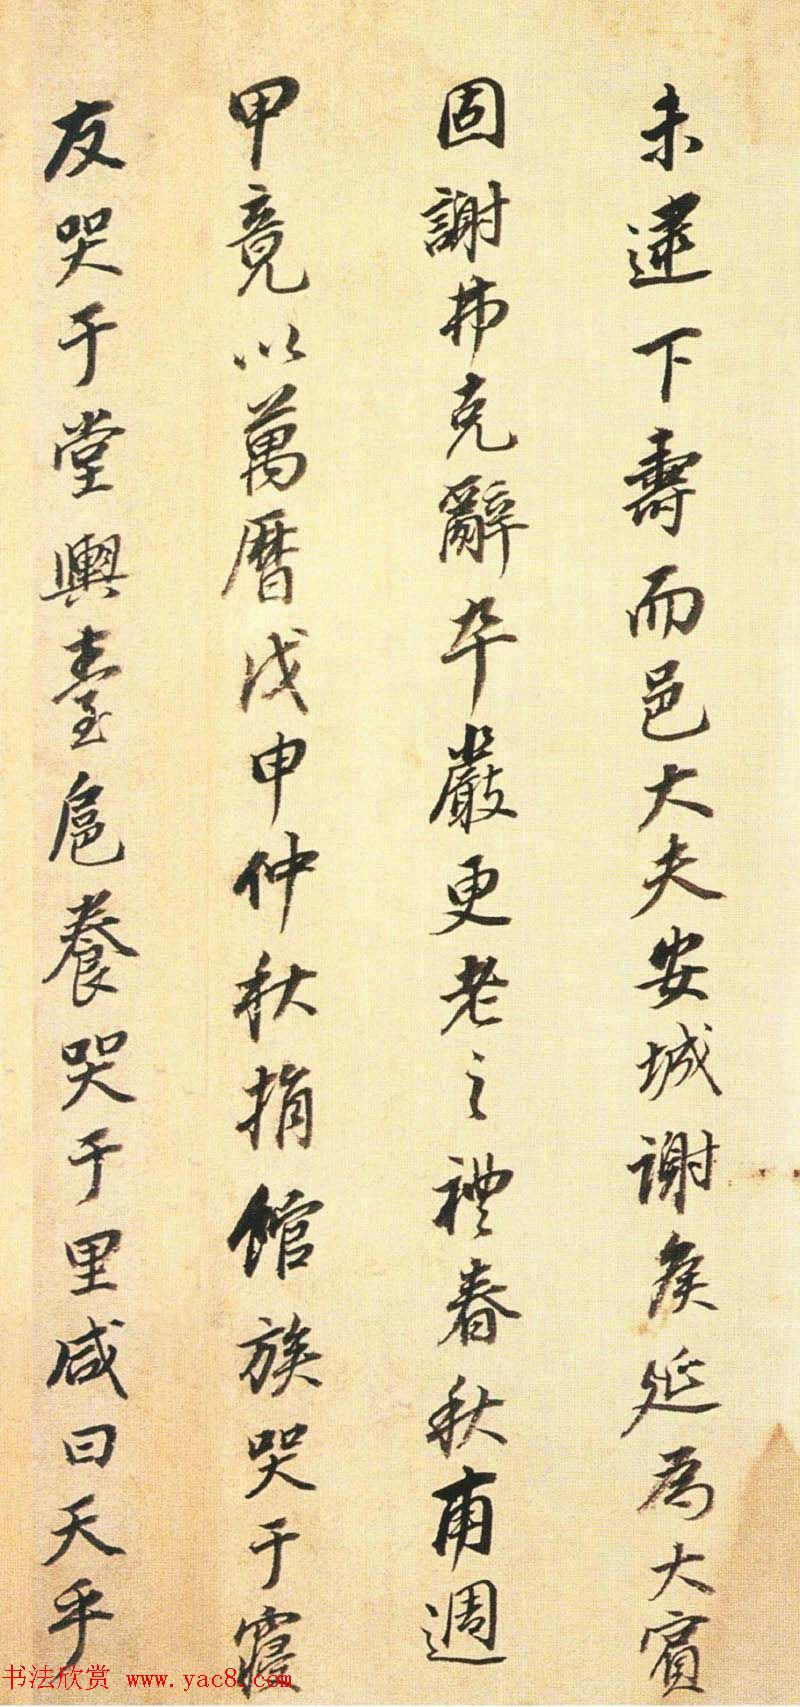 未逮下壽而邑大夫安城谢矦延為大賓
固謝弗克辭卒嚴更老之禮春秋甫週
甲竟以萬曆戊申仲秋捐館族哭于寢
友哭于堂輿臺扈養哭于里咸曰天乎
书法欣赏 www.yac8.